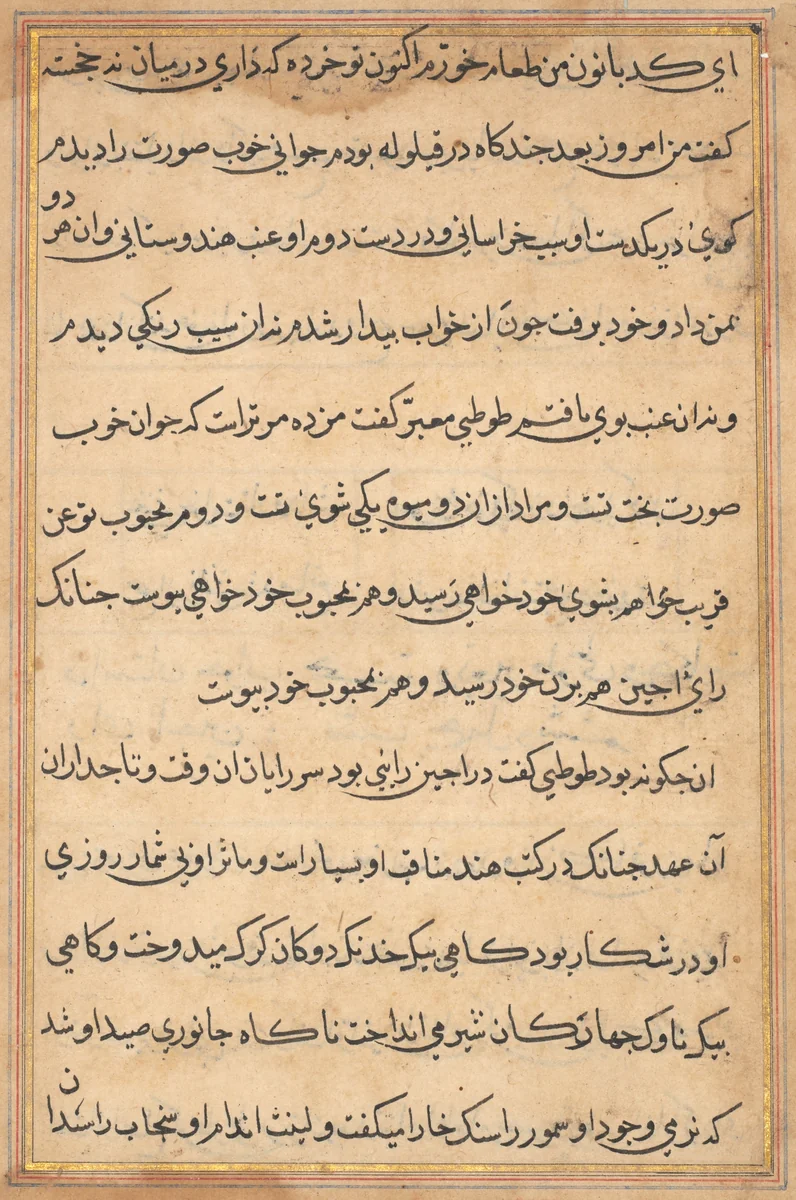 ای کد بانون من طعام خوردم اکنون تو خرده که داری درمیان نه خجسته
کفت من امروز بعد چند کاه در قیلوله بودم جوانی خوب صورت را دیدم
کویٔ در یکدست او سیب خراسانی و در دست دوم او عنب هندوستانی وان هر دو
بمن داد و خود برفت چون از خواب بیدار شدم ندان سیب رنکی دیدم
و ندان عنب بوی یافتم طوطیی معبرّ کفت مزده مر تراست که جوان خوب
صورت بخت تست و مراد ازان دو میوه یکی شویٔ تست و دوم محبوب تو عن
قریب خواهم بشویٔ خود خواهی رسید و هم بمحبوب خود خواهی پیوست جنانک
رایٔ اجین هم بزن خود رسید و هم بمحبوب خود پیوست
ان جکونه بود طوطیی کفت در اجین رایٔی بود سر رایان ان وقت و تاجداران
آن عهد جنانک در کتب هند مناقب او بسیار است و ماثر او بی شمار روزی
او در شکار بود کاهی بیک خدنک دوکان کرک میدوخت و کاهی
بیک ناوک جهارکان شیر می انداخت ناکاه جانوری صید او شد
که نرمی وجود او سمور را سنک خارا میکفت و لینت اندام او سنجاب را سندان